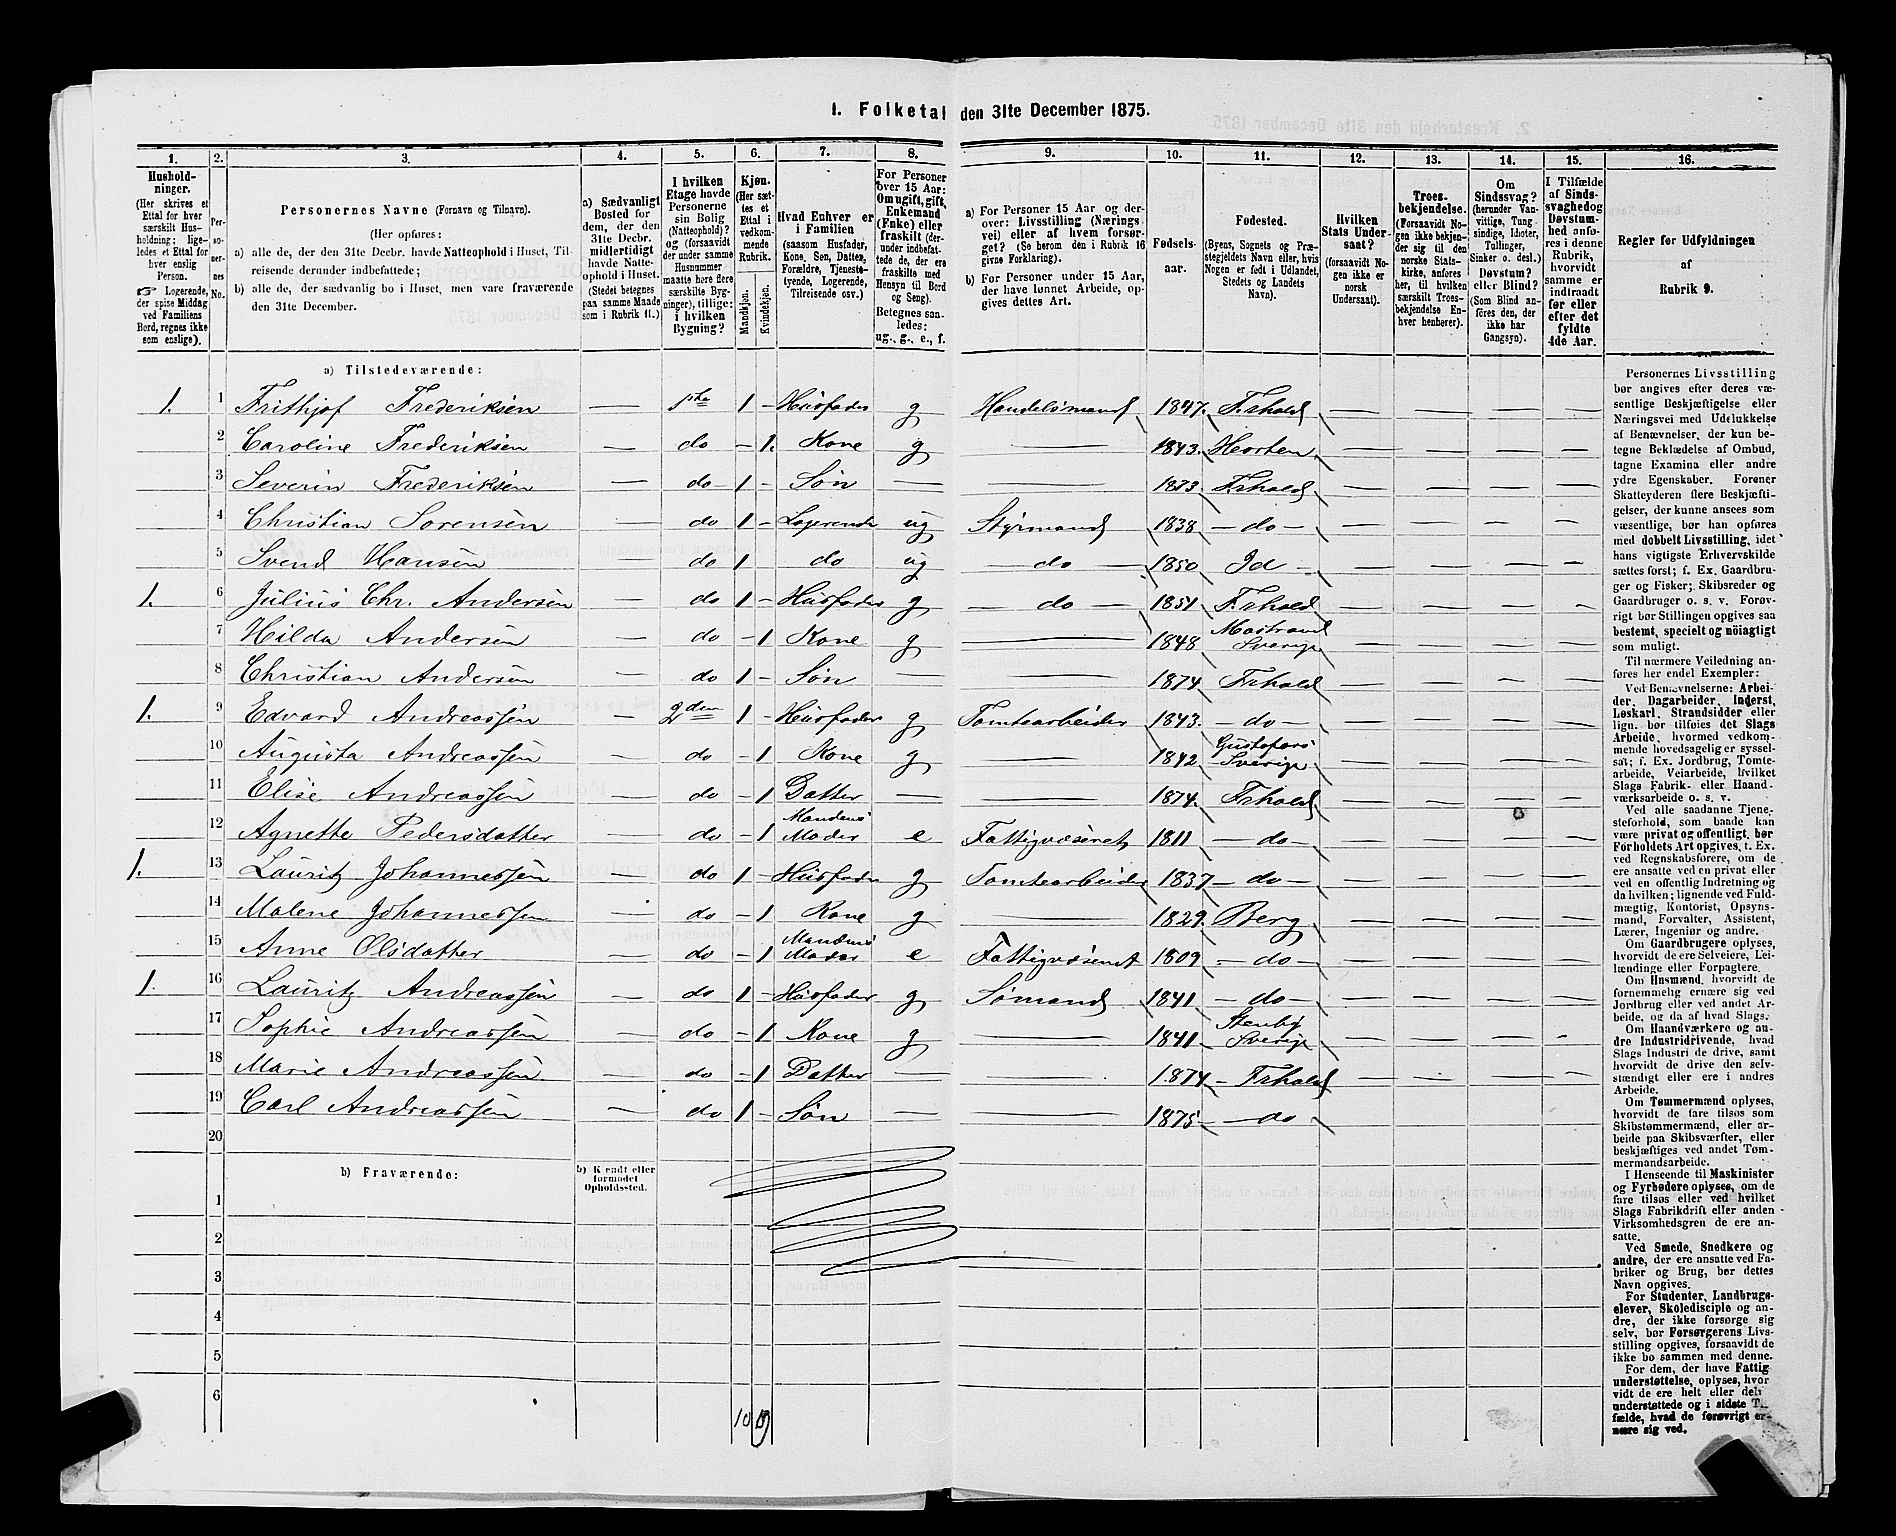 1. Folketal den 31te December 1875.
1. 2. 3. 4. 5. 6. 7. 8. 9. 10. 11. 12. 13. 14. 15. 16.
Hushold-
ninger.
(Her skrives et
Ettal for hver
særskilt Hus-
holdning; lige-
ledes et Ettal for
hver enslig
Person.
☞ Logerende,
der spise Middag
ved Familiens
Bord, regnes ikke
som enslige).
Per-
so-
ner-
nes
No.
Personernes Navne (Fornavn og Tilnavn).
(Her opføres:
a) alle de, der den 31te Decbr. havde Natteophold i Huset, Til-
reisende derunder indbefattede;
b) alle de, der sædvanlig bo i Huset, men vare fraværende
den 31te December.
a) Sædvanligt
Bosted for
dem, der den
31te Decbr.
midlertidigt
havde Natte-
ophold i Huset.
(Stedet betegnes
paa samme Maade
som i Rubrik 11.)
I hvilken
Etage havde
Personerne
sin Bolig
(Natteophold)?
og (forsaavidt
der under samme
Husnummer
maatte høre flere
særskilte Byg-
ninger), tillige:
i hvilken
Bygning?
Kjøn.
(Her sæt-
tes et
Ettal i
vedkom-
mende
Rubrik.
Mandkjøn.
Kvindekjøn.
Hvad Enhver er
i Familien
(saasom Husfader,
Kone, Søn, Datter,
Forældre, Tjeneste-
tyende, Logerende,
Tilreisende osv.)
For Personer
over 15 Aar:
Om ugift, gift,
Enkemand
(Enke) eller
fraskilt (der-
under indbefat-
tede de, der ere
fraskilte med
Hensyn til Bord
og Seng).
Betegnes saa-
ledes:
ug., g., e., f.
a) For Personer 15 Aar og der-
over: Livsstilling (Nærings-
vei) eller af hvem forsør-
get? (Se herom den i Rubrik 16
givne Forklaring).
b) For Personer under 15 Aar,
der have lønnet Arbeide, op-
gives dettes Art.
Fødsels-
aar.
Fødested.
(Byens, Sognets og Præ-
stegjeldets Navn eller, hvis
Nogen er født i Udlandet,
Stedets og Landets
Navn).
Hvilken
Stats Under-
saat?
(forsaavidt No-
gen ikke er
norsk
Undersaat).
Troes-
bekjendelse.
(Forsaavidt No-
gen ikke bekjen-
der sig til den
norske Stats-
kirke, anføres
her, til hvilken
særskilt Troes-
bekjendelse En-
hver henhører).
Om
Sindssvag?
(herunder Van-
vittige, Tung-
sindige, Idioter,
Tullinger,
Sinker o. desl.)
Døvstum?
eller Blind?
(Som Blind an-
føres den, der
ikke har
Gangsyn).
I Tilfælde
af Sinds-
svaghed og
Døvstum-
hed anfø-
res i denne
Rubrik,
hvorvidt
samme er
indtraadt
før eller
efter det
fyldte
4de Aar.
Regler for Udfyldningen
af
Rubrik 9.
a) Tilstedeværende:
1. 1 Frithjof Frederiksen — 1ste 1 – Husfader g Handelsmand 1847. Frhald — — — —
2 Caroline Frederiksen — do – 1. Kone g — 1843. Horten — — — —
3 Severin Frederiksen — do 1 – Søn — — 1873. Frhald — — — —
4 Christian Sørensen — do 1 – Logerende ug Styrmand 1838 – do – — — — —
5 Svend Hansen — do 1 do ug – do – 1850 Id – — — — —
1. 6 Julius Chr. Andersen — do 1 – Husfader g – do – 1851 Frhald — — — —
7 Hilda Andersen — do – 1 Kone g — 1848 Mastrand Sverige — — — —
8 Christian Andersen — do 1 – Søn — — 1874 Frhald — — — —
1. 9 Edvard Andreassen – 2den 1 – Husfader g Tomtearbeider 1843. – do – — — — —
10 Augusta Andreassen – do – 1 Kone g — 1842 Gustafors Sverige — — — —
11 Elise Andreassen — do – 1 Datter — — 1874. Frhald — — — —
12 Agnette Pedersdatter — do – 1 Mandens Moder e Fattigvæsenet 1811 – do – — — — —
1. 13 Lauritz Johannessen — do 1 – Husfader g Tomtearbeider 1837 – do – — — — —
14 Malene Johannessen — do – 1 Kone g — 1829. Berg — — — —
15 Anne Olsdatter — do – 1 Mandens Moder e Fattigvæsenet 1809 – do – — — — —
1. 16 Lauritz Andreassen — do 1 – Husfader g Sømand 1841 – do – — — — —
17 Sophie Andreassen — do – 1 Kone g — 1841 Stenby Sverige — — — —
18 Marie Andreassen — do – 1 Datter — — 1874 – Frhald — — — —
19 Carl Andreassen — do 1 – Søn — — 1875 – do — — — —
20
b) Fraværende:
b) Kjendt eller
formodet
Opholdssted.
1
2
3
4
5
6
10 9
Personernes Livsstilling
bør angives efter deres væ-
sentlige Beskjæftigelse eller
Næringsvei med Udelukkelse
af Benævnelser, der kun be-
tegne Beklædelse af Ombud,
tagne Examina eller andre
ydre Egenskaber. Forener
Skatteyderen flere Beskjæfti-
gelser, der kunne ansees som
væsentlige, bør han opføres
med dobbelt Livsstilling, idet
hans vigtigste Erhvervskilde
sættes først; f. Ex. Gaardbru-
ger og Fisker; Skibsreder og
Gaardbruger o. s. v. Forøv-
rigt bør Stillingen opgives saa
bestemt, specielt og nöiagtigt
som muligt.
Til nærmere Veiledning an-
føres her endel Exempler:
Ved Benævnelserne: Arbei-
der, Dagarbeider, Inderst,
Løskarl, Strandsidder eller
lign. bør tilføies det Slags
Arbeide, hvormed vedkom-
mende hovedsagelig er syssel-
sat; f. Ex. Jordbrug, Tomte-
arbeide, Veiarbeide, hvilket
Slags Fabrik- eller Haand-
værksarbeide o. s. v.
Ved alle saadanne Tjene-
steforhold, som baade kan
være privat og offentligt, bør
Forholdets Art opgives, t. Ex.
ved Regnskabsførere, om de
ere ansatte ved en privat eller
ved en offentlig Indretning og
da hvilken; lignende ved Fuld-
mægtig, Kontorist, Opsyns-
mand, Forvalter, Assistent,
Lærer, Ingeniør og andre.
Om Gaardbrugere oplyses,
hvorvidt de ere Selveiere, Lei-
lændinge eller Forpagtere.
Om Husmænd, hvorvidt de
fornemmelig ernære sig ved
Jordbrug eller ved andet Ar-
beide, og da af hvad Slags.
Om Haandværkere og an-
dre Industridrivende, hvad
Slags Industri de drive, samt
hvorvidt de drive den selv-
stændigt eller ere i andres
Arbeide.
Om Tømmermænd oplyses,
hvorvidt de fare tilsøs som
Skibstømmermænd, eller ar-
beide paa Skibsværfter, eller
beskjæftiges ved andet Tøm-
mermandsarbeide.
I Henseende til Maskinister
og Fyrbødere oplyses, om de
fare tilsøs eller ved hvilket
Slags Fabrikdrift eller anden
Virksomhedsgren de ere an-
satte.
Ved Smede, Snedkere og
andre, der ere ansatte ved Fa-
briker og Brug, bør dettes
Navn opgives.
For Studenter, Landbrugs-
elever, Skoledisciple og an-
dre, der ikke forsørge sig
selv, bør Forsørgerens Livs-
stilling opgives, forsaavidt de
ikke bo sammen med denne.
For dem, der have Fattig
understøttelse, oplyses, hvor
vidt de ere helt eller delv
understøttede og i sidste T
fælde, hvad de forøvrigt er-
nære sig ved.